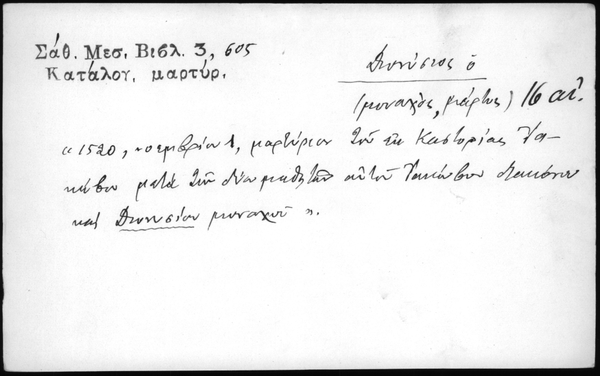 Σάθ. Μεσ. Βιβλ. 3, 605
Κατάλογ. μαρτύρ.
Διονύσιος ὁ
(μοναχὸς, μάρτυς) 16 αἰ.
"1520, νοεμβρίου 1, μαρτύριον τοῦ ἐκ Καστορίας Ἰα-
κώβου μετὰ τῶν δύο μαθητῶν αὐτοῦ Ἰακώβου διακόνου
καὶ Διονυσίου μοναχοῦ".